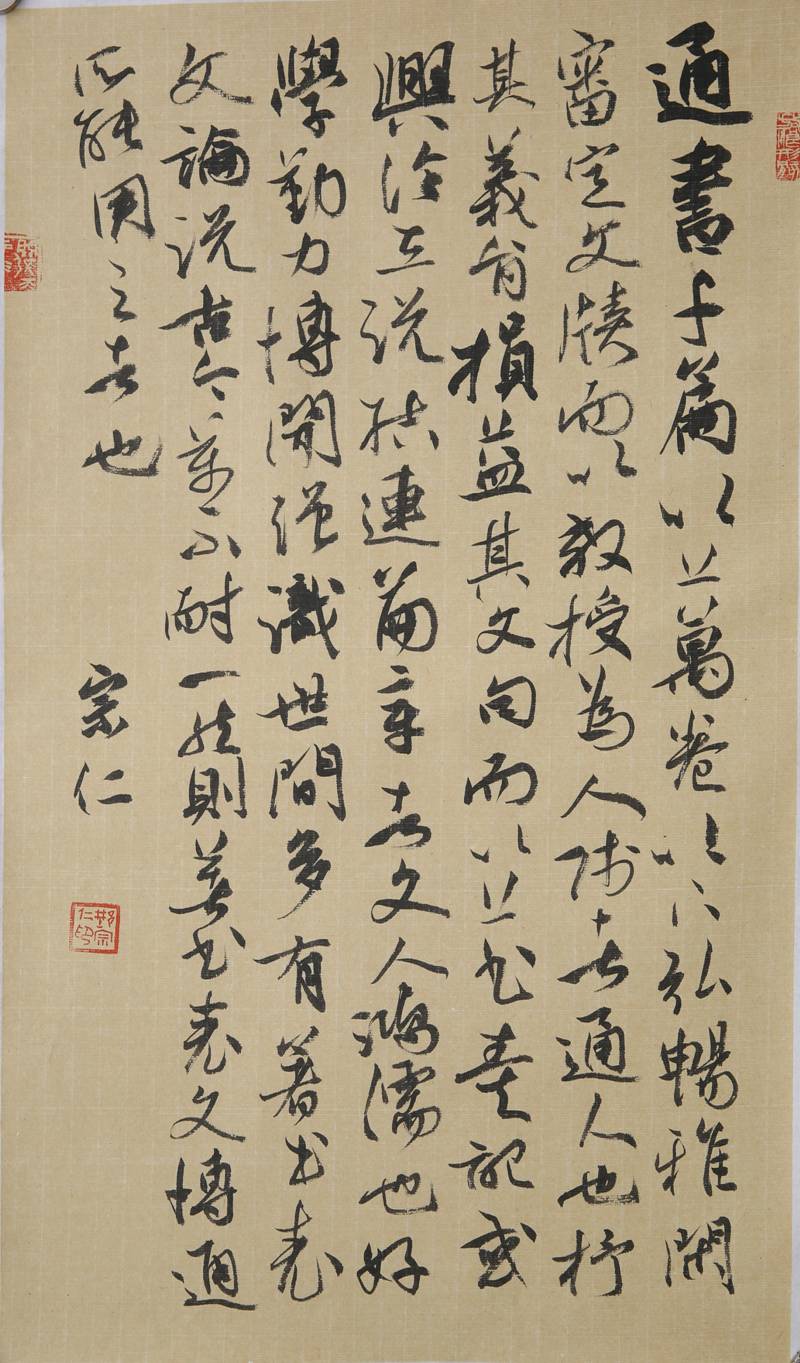 通書千篇以上萬卷以下弘暢雅閑
審定文牘而以教授為人師者通人也杼
其義旨損益其文句而以上书奏記或
興论立说结連篇章者文人鴻濡也好
學勤力博聞强識世間多有著书表
文論说古今萬不耐一然則著书表文博通
所能用之者也
宗仁
邢宗仁印